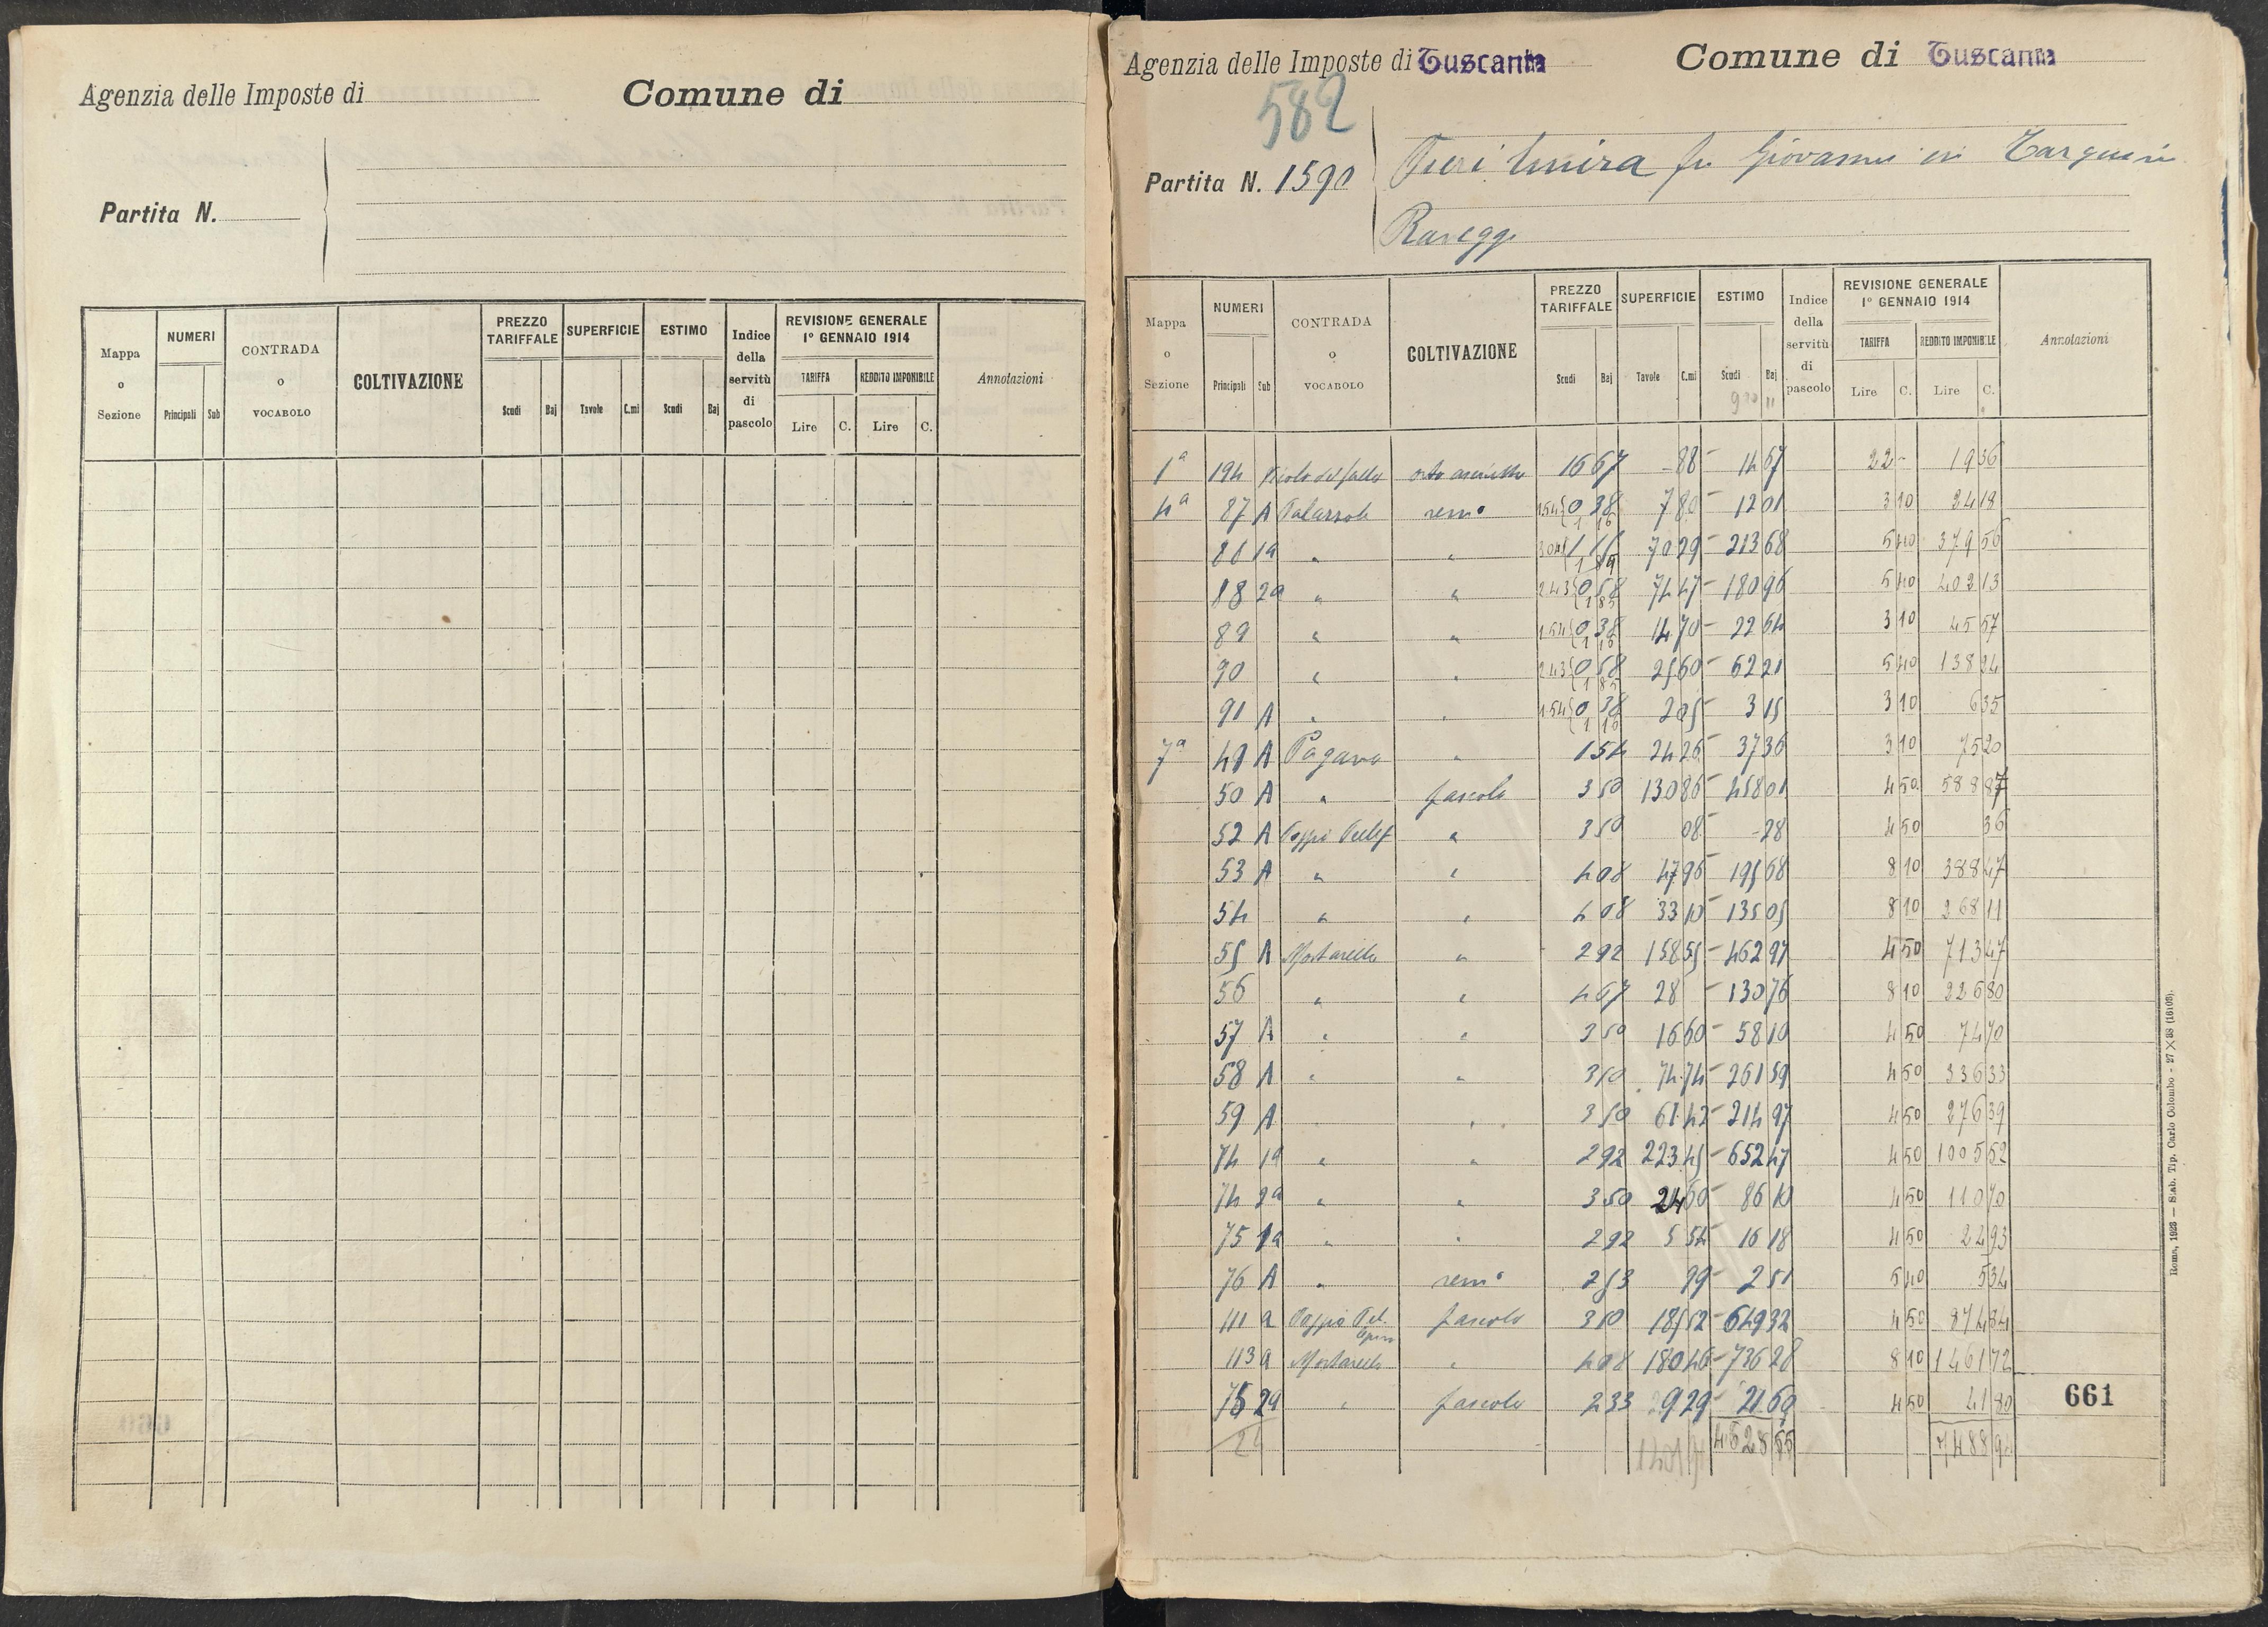 Agenzia delle Imposte di
Comune di
Partita N.
Mappa o Sezione
NUMERI
Principali Sub
CONTRADA o VOCABOLO
COLTIVAZIONE
PREZZO TARIFFALE
Scudi Baj
SUPERFICIE
Tavole C.mi
ESTIMO
Scudi Baj
Indice della servitù di pascolo
REVISIONE GENERALE
1º GENNAIO 1914
TARIFFA
Lire C.
REDDITO IMPONIBILE
Lire C.
Annotazioni
Agenzia delle Imposte di Tuscania
Comune di Tuscania
582
Partita N. 1590
fu Giovanni in
Mappa o Sezione
NUMERI
Principali Sub
CONTRADA o VOCABOLO
COLTIVAZIONE
PREZZO TARIFFALE
Scudi Baj
SUPERFICIE
Tavole C.mi
ESTIMO
Scudi Baj
Indice della servitù di pascolo
REVISIONE GENERALE
1º GENNAIO 1914
TARIFFA
Lire C.
REDDITO IMPONIBILE
Lire C.
Annotazioni
1ª 194 orto asciutto 16 67 - 88 - 14 67 22 - 19 36
4ª 87 A semo 1 54 0 38 1 16 7 80 - 12 01 3 10 24 18
1a " " 70 29 - 213 68 5 40 379 56
88 2a " " 2 43 0 58 1 85 74 47 - 180 96 5 40 402 13
89 " " 1 54 0 38 1 16 14 70 - 22 64 3 10 45 57
90 " " 2 43 0 58 1 85 25 60 - 62 21 5 40 138 24
91 A " " 1 54 0 38 1 16 2 05 - 3 15 3 10 6 35
7ª A " 1 54 24 26 - 37 36 3 10 75 20
50 A " pascolo 3 50 130 86 - 458 01 4 50 588 87
52 A " 3 50 08 - - 28 4 50 36
53 A " " 4 08 47 96 - 195 68 8 10 388 47
54 " " 4 08 33 10 - 135 05 8 10 268 11
55 A Mostarello " 2 92 158 55 - 462 97 4 50 713 47
56 " " 4 67 28 - 130 76 8 10 226 80
57 A " " 3 50 16 60 - 58 10 4 50 74 70
58 A " " 3 50 74 74 - 261 59 4 50 336 33
59 A " " 3 50 61 42 - 214 97 4 50 276 39
74 1a " " 2 92 223 45 - 652 47 4 50 1005 52
74 2a " " 3 50 24 60 - 86 10 4 50 110 70
75 1a " " 2 92 5 54 - 16 18 4 50 24 93
76 A " semo 2 53 99 - 2 51 5 40 5 34
111 a pascolo 3 50 185 52 - 649 32 4 50 834 84
113 a Mostarello " 4 08 180 46 - 736 28 8 10 1461 72
75 2a " pascolo 2 33 9 29 - 21 60 4 50 41 80
24
661
Roma, 1923 — Stab. Tip. Carlo Colombo - 27 × 38